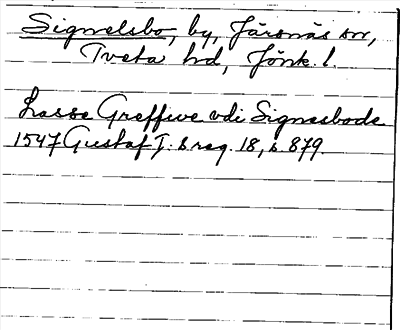 Signelsbo, by, Järsnäs sn,
Tveta hd, Jönk. l.
Lasse Greffwe vdi Signasbode
1547 Gustaf I:s reg. 18, s. 879.